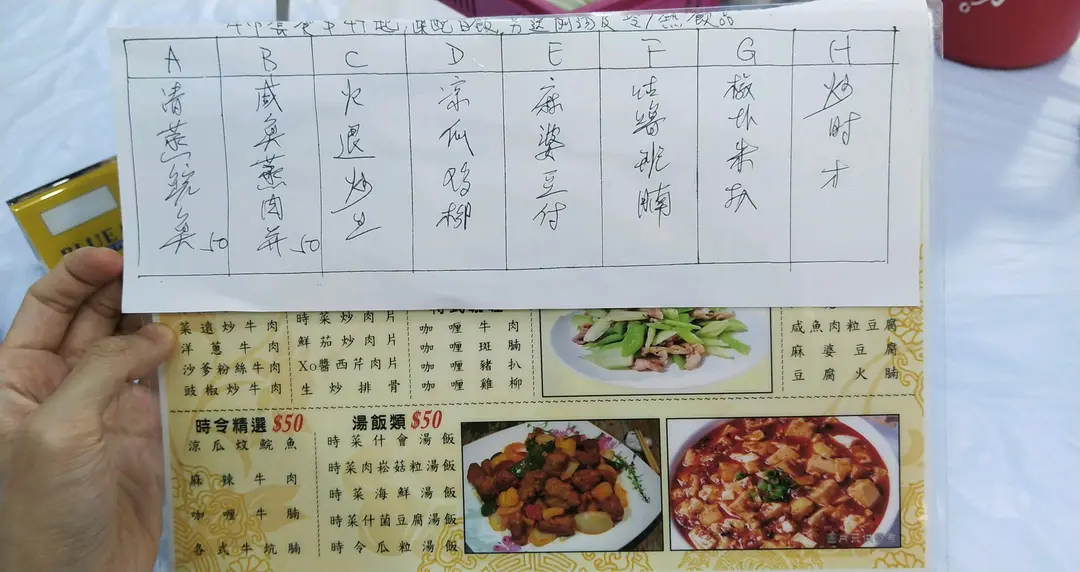 A B C D E F G H
清蒸鯇魚50
咸魚蒸肉并50
火退炒旦
凉瓜鸡柳
麻婆豆付
腩
椒朱扒
炒时才
菜遠炒牛肉
洋蔥牛肉
沙爹粉絲牛肉
豉椒炒牛肉
時菜炒肉片
鮮茄炒肉片
Xo醬西芹肉片
生炒排骨
咖喱牛肉
咖喱斑腩
咖喱豬扒
咖喱雞柳
咸魚肉粒豆腐
麻婆豆腐
豆腐火腩
時令精選 $50
涼瓜炆鯇魚
麻辣牛肉
咖喱牛腩
各式牛坑腩
湯飯類 $50
時菜什會湯飯
時菜肉崧菇粒湯飯
時菜海鮮湯飯
時菜什菌豆腐湯飯
時令瓜粒湯飯
BLUE